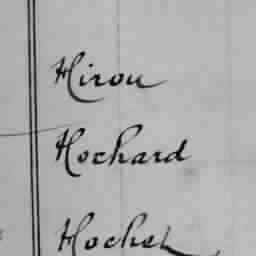 Hirou
Hochard
Hochet